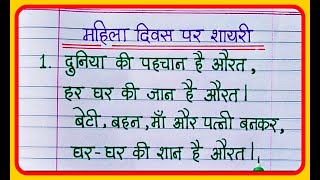 महिला दिवस पर शायरी
1. दुनिया की पहचान है औरत,
हर घर की जान है औरत।
बेटी, बहन, माँ और पत्नी बनकर,
घर-घर की शान है औरत।